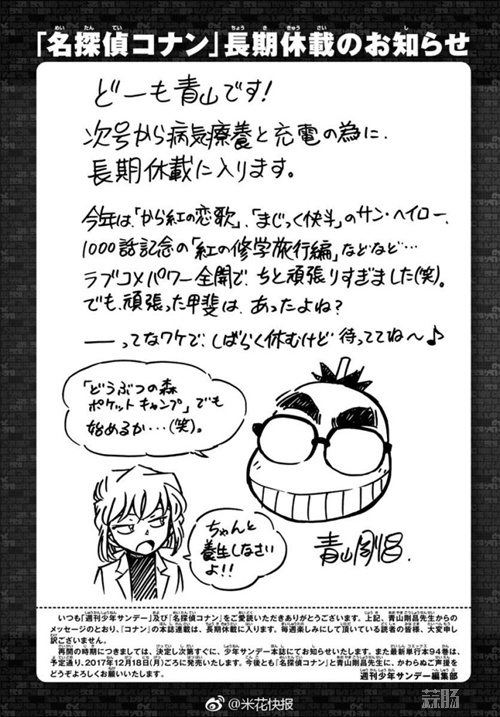 「名探偵コナン」長期休載のお知らせ
どーも青山です!
次号から病気療養と充電の為に、
長期休載に入ります。
今年は、「から紅の恋歌」、「まじっく快斗」のサン・ヘイロー、
1000話記念の「紅の修学旅行編」などなど…
ラブコメパワー全開で、ちと頑張りすぎました(笑)。
でも、頑張った甲斐は、あったよね?
――ってなワケで、しばらく休むけど 待っててね〜♪
「どうぶつの森
ポケットキャンプ」でも
始めるか…(笑)。
ちゃんと
養生しなさい
よ!!
青山剛昌
いつも「週刊少年サンデー」及び「名探偵コナン」をご愛読いただきありがとうございます。上記、青山剛昌先生からの
メッセージのとおり、『コナン』の本誌連載は、長期休載に入ります。毎週楽しみにして頂いている読者の皆様、大変申し
訳ございません。
再開の時期につきましては、決定し次第すぐに、少年サンデー本誌にてお知らせいたします。また最新単行本94巻は、
予定通り、2017年12月18日(月)ごろに発売いたします。今後とも「名探偵コナン」と青山剛昌先生に、かわらぬご声援を
どうぞよろしくお願いいたします。
週刊少年サンデー編集部
@米花快报
蒜肠